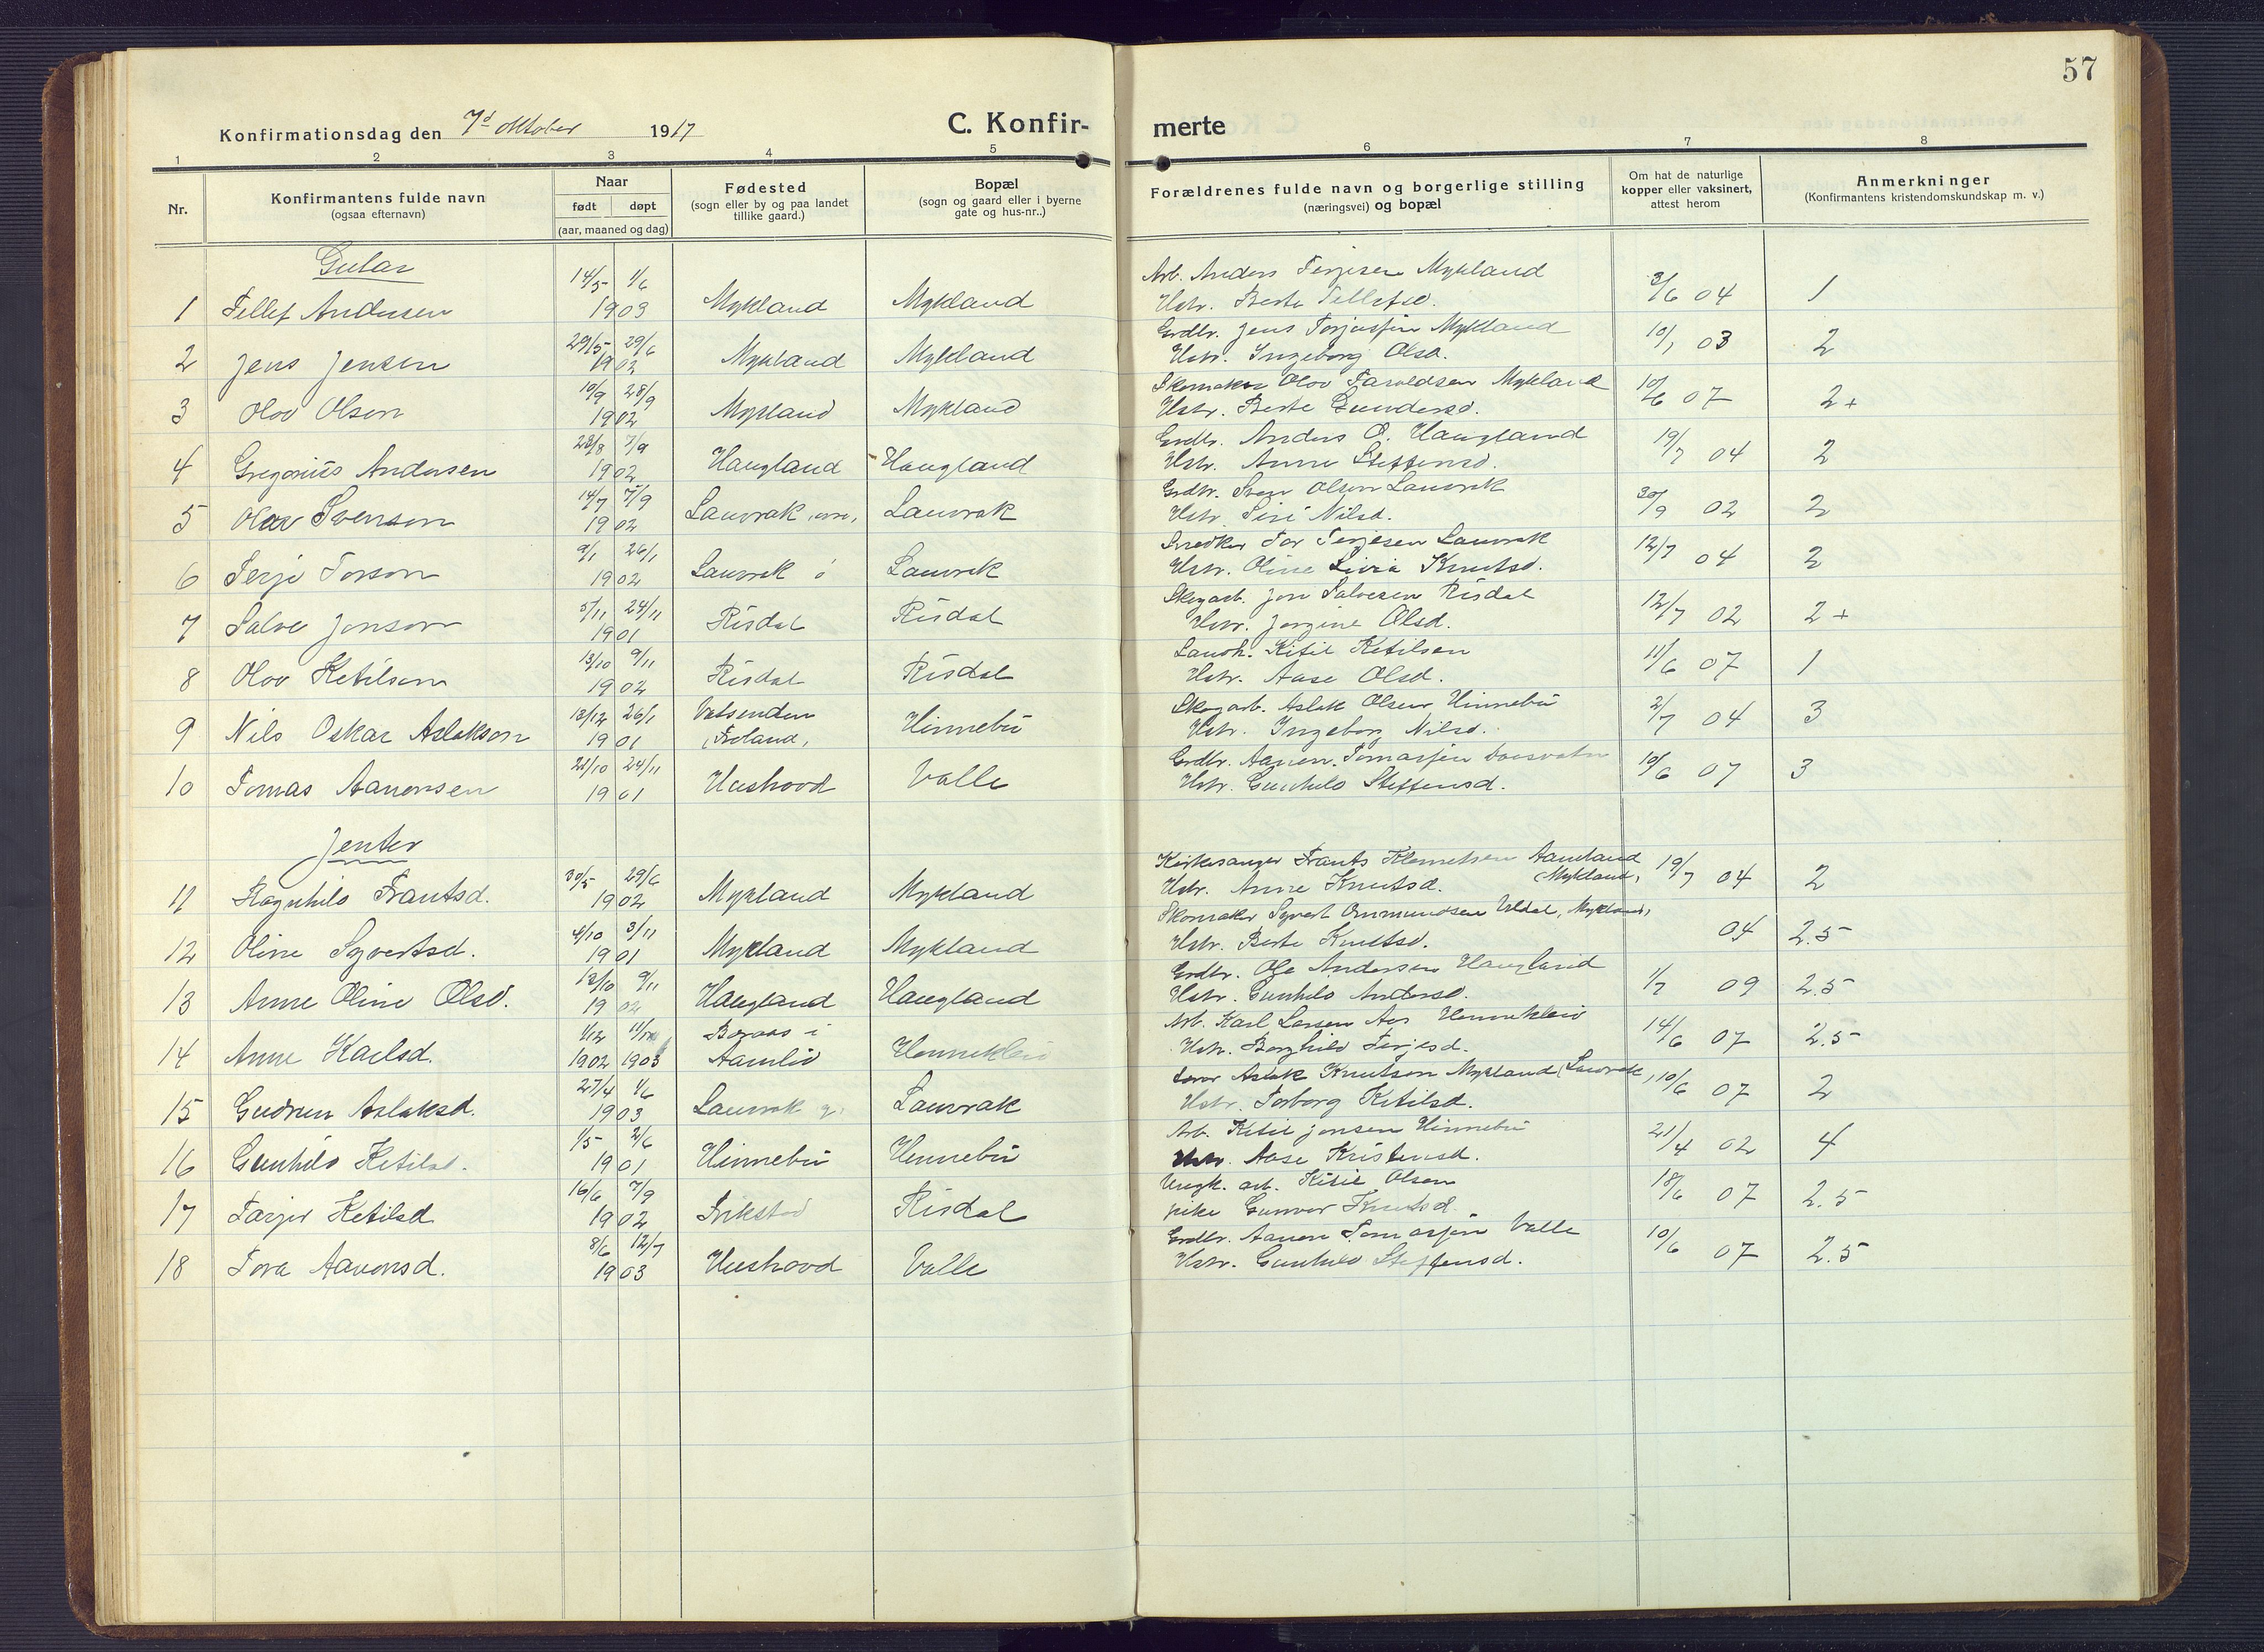 57
Konfirmationsdag den 7d oktober 1917
C. Konfir-
merte
1 2 3 4 5 6 7 8
Nr.
Konfirmantens fulde navn
(ogsaa efternavn)
Naar
født døpt
(aar, maaned og dag)
Fødested
(sogn eller by og paa landet
tillike gaard.)
Bopæl
(sogn og gaard eller i byerne
gate og hus-nr..)
Forældrenes fulde navn og borgerlige stilling
(næringsvei) og bopæl
Om hat de naturlige
kopper eller vaksinert,
attest herom
Anmerkninger
(Konfirmantens kristendomskundskap m. v.)
Gutar
14/5 1/6 Arb. Anders Terjesen Mykland
1 Tellef Andersen 1903 Mykland Mykland Hstr. Berte Tellefsd. 3/6 04 1
29/5 29/6 Grdbr. Jens Torjusfin Mykland
2 Jens Jensen 1902 Mykland Mykland Hstr. Ingeborg Olsd. 10/1 03 2
10/9 28/9 Skomaker Olov Taraldsen Mykland
3 Olov Olsen 1902 Mykland Mykland Hstr. Berte Gundersd. 10/6 07 2+
28/8 7/9 Grdbr. Anders O. Haugland
4 Gregorius Andersen 1902 Haugland Haugland Hstr. Anne Steffensd. 19/7 04 2
14/7 7/9 Grdbr. Sven Olsen Lauvrak
5 Olav Svenson 1902 Lauvrak Lauvrak Hstr. Siri Nilsd. 30/9 02 2
9/1 26/1 Snedker Tor Terjesen Lauvrak
6 Terje Torson 1902 Lauvrak ø Lauvrak Hstr. Oline Livia Knutsd. 12/7 04 2
5/11 24/11 Skogarb. Jon Salvesen Risdal
7 Salve Jonson 1901 Risdal Risdal Hstr. Jorgine Olsd. 12/7 02 2+
13/10 9/11 Landh. Kitil Ketilsen
8 Olov Ketilson 1902 Risdal Risdal Hstr. Aase Olsd. 11/6 07 1
13/12 26/1 Vatsenden Skogarb. Aslak Olsen Hinnebu
9 Nils Oskar Aslakson 1901 (Froland) Hinnebu Hstr. Ingeborg Nilsd. 2/7 04 3
21/10 24/11 Grdbr. Aanen Tomasfin
10 Tomas Aanensen 1901 Hushovd Valle Hstr. Gunhild Steffensd. 10/6 07 3
Jenter
30/5 29/6 Kirkesanger Frants Klemetsen Aamland
11 Ragnhild Frantsd. 1902 Mykland Mykland Hstr. Anne Knutsd. (Mykland) 19/7 04 2
4/10 3/11 Skomaker Syvert Ommundsen Uldal, Mykland,
12 Oline Syvertsd. 1901 Mykland Mykland Hstr. Berte Knutsd. 04 2.5
12/10 9/11 Grdbr. Ole Andersen Haugland
13 Anne Oline Olsd. 1902 Haugland Haugland Hstr. Gunhild Andersd. 1/7 09 2.5
1/12 Bøgaas i Arb. Karl Larsen Aas Hennekleiv
14 Anne Karlsd. 1902 1903 Aamlid Hennekleiv Hstr. Borghild Terjesd. 14/6 07 2.5
27/4 1/6 Lærer Aslak Knutson Mykland (Lauvrak) 10/6
15 Gudrun Aslaksd. 1903 Lauvrak Lauvrak Hstr. Torborg Ketilsd. 07 2
1/5 2/6 Arb. Kitil Jonsen Hinnebu
16 Gunhild Ketilsd. 1901 Hinnebu Hennebu Hstr. Aase Kristensd. 21/4 02 4
16/6 7/9 Ungk. arb. Kitil Olsen
17 Tarjer Ketilsd 1902 Frikstad Risdal pike Gunvor Knutsd. 18/6 07 2.5
8/6 12/7 Grdbr. Aanen Tomasfin Valle
18 Tora Aanensd. 1903 Hushovd Valle Hstr. Gunhild Steffensd. 10/6 07 2.5